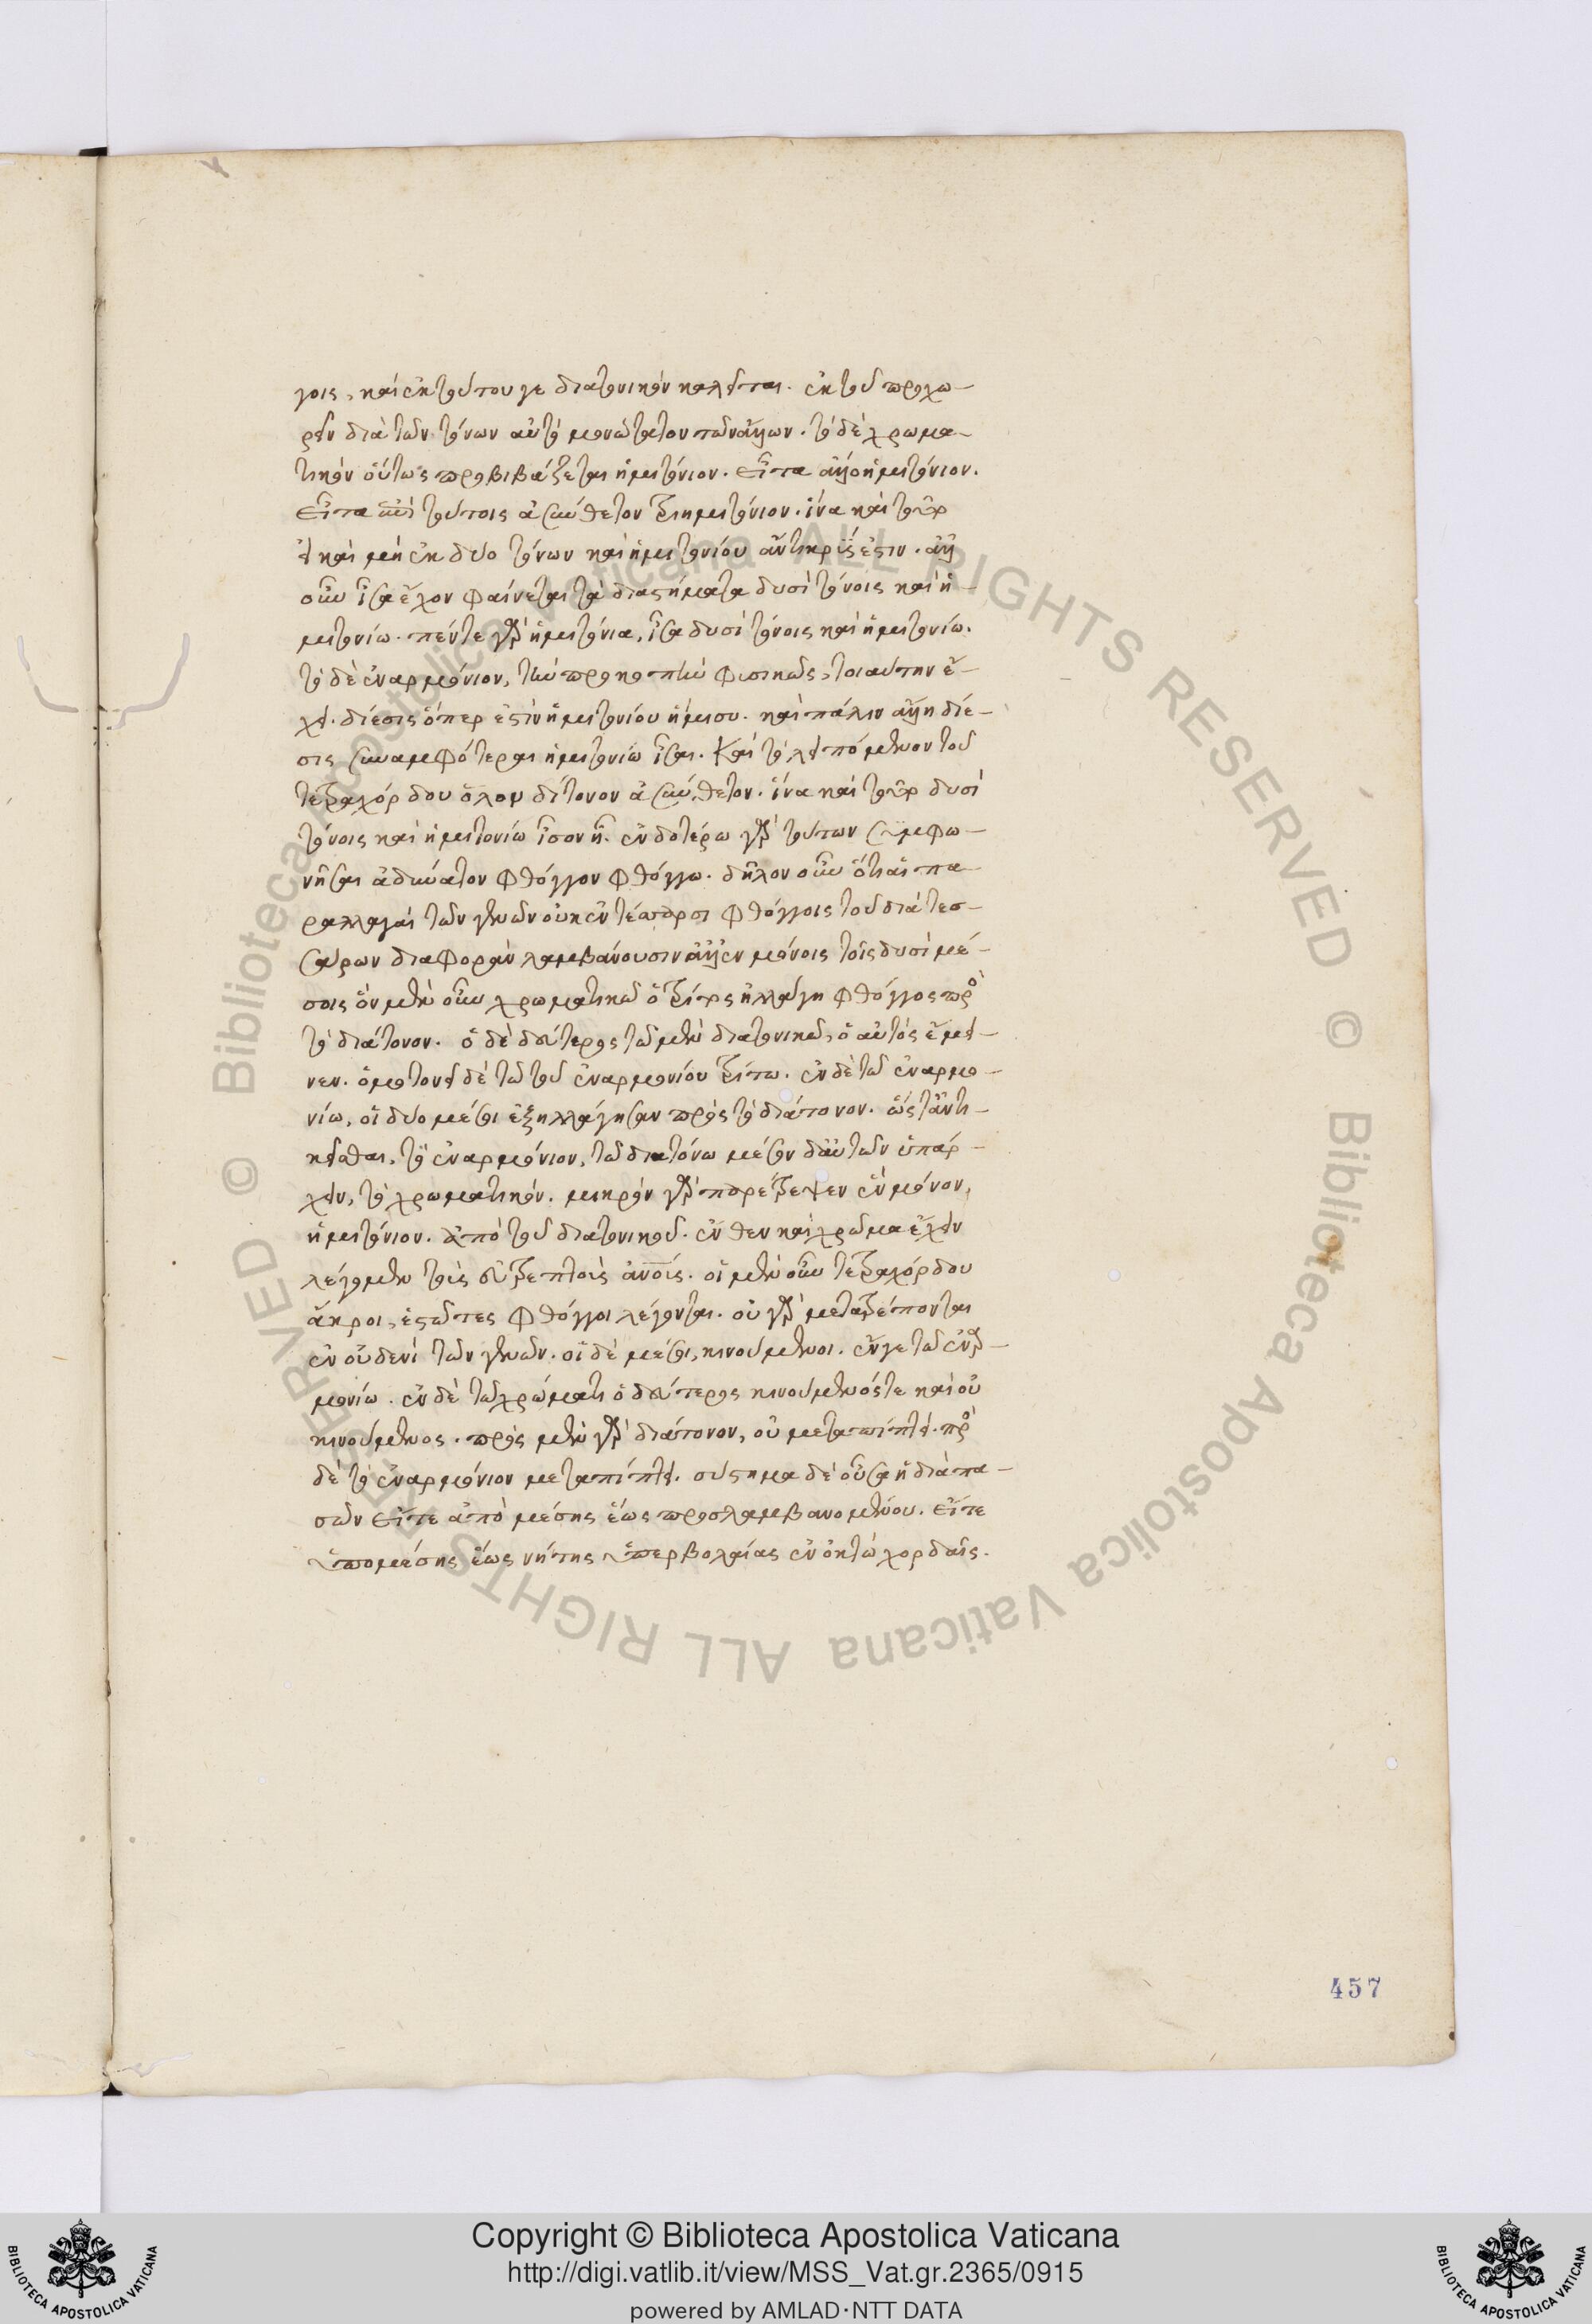 γοις, καὶ ἐκ τούτου γε διατονικὸν καλεῖται. ἐκ τοῦ προχω-
ρεῖν διὰ τῶν τόνων αὐτὸ μονώτατον τῶν ἄλλων. τὸ δὲ χρωμα-
τικὸν οὕτως προβιβάζεται ἡμιτόνιον. εἶτα ἄλλο ἡμιτόνιον.
εἶτα ἐπὶ τούτοις ἀσύνθετον τριημιτόνιον. ἵνα καὶ τοῦτο
εἰ καὶ μὴ ἐκ δύο τόνων καὶ ἡμιτονίου ἄντικρύς ἐστιν. ἀλλ'
οὖν ἴσα ἔχον φαίνεται τὰ διαστήματα δυσὶ τόνοις καὶ ἡ-
μιτονίω. πέντε γὰρ ἡμιτόνια, ἴσα δυσὶ τόνοις καὶ ἡμιτονίω.
τὸ δὲ ἐναρμόνιον, τὴν προκοπὴν φυσικῶς, τοιαύτην ἔ-
χει. δίεσις ὅπερ ἐστὶν ἡμιτονίου ἥμισυ. καὶ πάλιν ἄλλη δίε-
σις συναμφότεραι ἡμιτονίω ἴσαι. καὶ τὸ λειπόμενον τοῦ
τετραχόρδου ὅλον δίτονον ἀσύνθετον. ἵνα καὶ τοῦτο δυσὶ
τόνοις καὶ ἡμιτονίω ἴσον ᾖ. ἐνδοτέρω γὰρ τούτων συμφω-
νῆσαι ἀδύνατον φθόγγον φθόγγω. δῆλον οὖν ὅτι αἱ πα
ραλλαγαὶ τῶν γενῶν οὐκ ἐν τέτταρσι φθόγγοις τοῦ διὰ τεσ-
σάρων διαφορὰν λαμβάνουσιν ἀλλ' ἐν μόνοις τοῖς δυσὶ μέ-
σοις ἐν μὲν οὖν χρωματικῶ ὁ τρίτος ἠλλάγη φθόγγος πρὸς
τὸ διάτονον. ὁ δὲ δεύτερος τῶ μὲν διατονικῶ, ὁ αὐτὸς ἔμει-
νεν. ὁμοτονεῖ δὲ τῶ τοῦ ἐναρμονίου τρίτω. ἐν δὲ τῶ ἐναρμο-
νίω, οἱ δύο μέσοι ἐξηλλάγησαν πρὸς τὸ διάτονον. ὥς τ' ἀντι-
κεῖσθαι, τὸ ἐναρμόνιον, τῶ διατόνω μέσον δ' αὐτῶν ὑπάρ-
χειν, τὸ χρωματικόν. μικρὸν γὰρ παρέτρεψεν ἓν μόνον,
ἡμιτόνιον. ἀπὸ τοῦ διατονικοῦ. ἔνθεν καὶ χρῶμα ἔχειν
λέγομεν τοὺς εὐτρέπτους ἀνους. οἱ μὲν οὖν τετραχόρδου
ἄκροι, ἑστῶτες φθόγγοι λέγονται. οὐ γὰρ μετατρέπονται
ἐν οὐδενὶ τῶν γενῶν. οἱ δὲ μέσοι, κινούμενοι. ἔν γε τῶ ἐναρ-
μονίω. ἐν δὲ τῶ χρώματι ὁ δεύτερος κινούμενός τε καὶ οὐ
κινούμενος. πρὸς μὲν γὰρ διάτονον, οὐ μεταπίπτει. πρὸς
δὲ τὸ ἐναρμόνιον μεταπίπτει. σύστημα δὲ οὖσα ἡ διὰ πα-
σῶν εἴτε ἀπὸ μέσης ἕως προσλαμβανομένου. εἴτε
ἀπὸ μέσης ἕως νήτης ὑπερβολαίας ἐν ὀκτὼ χορδαῖς.
457